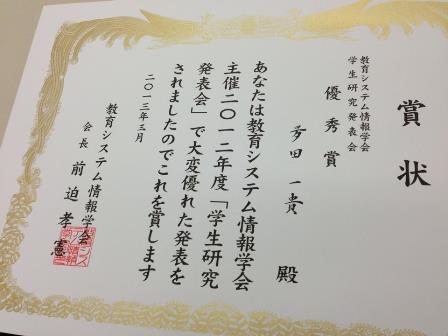 賞状
教育システム情報学会
学生研究発表会
優秀賞
多田 一貴 殿
あなたは教育システム情報学会
主催二〇一二年度「学生研究
発表会」で大変優れた発表を
されましたのでこれを賞します
二〇一三年三月
教育システム情報学会
会長 前迫孝憲